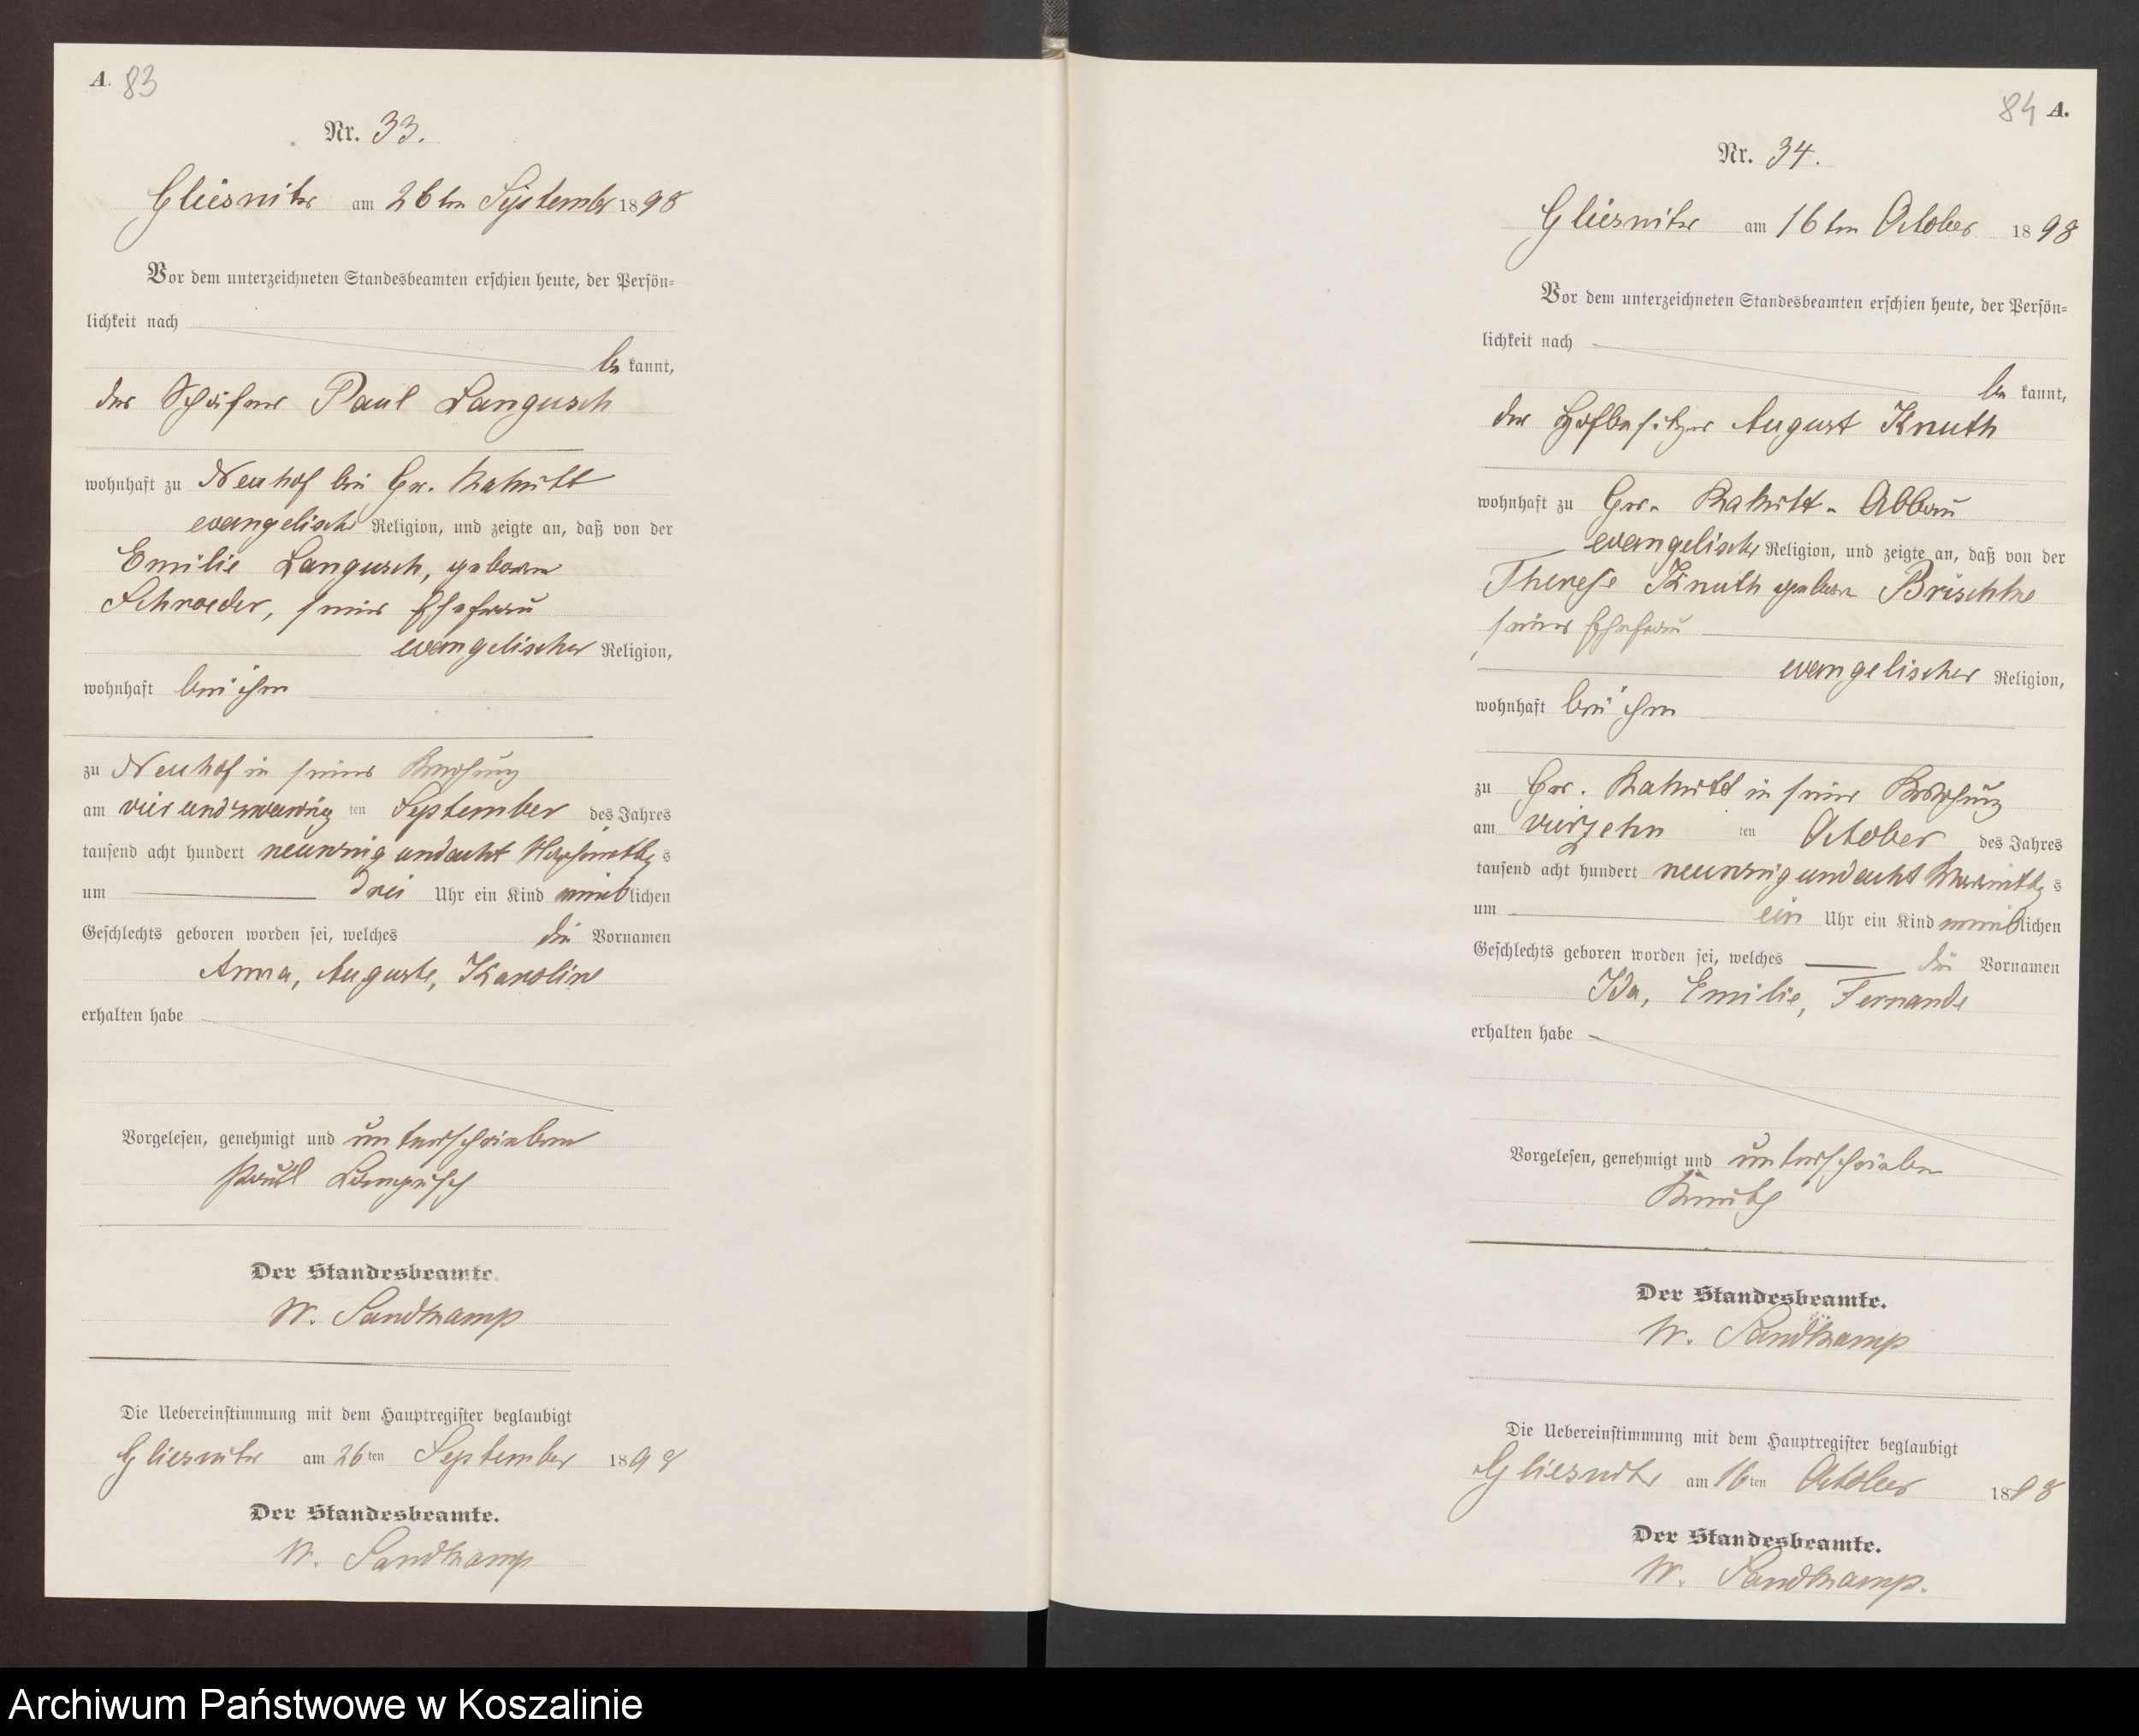 A. 83
Nr. 33.
Gliesnitz am 26ten September 1898
Vor dem unterzeichneten Standesbeamten erschien heute, der Persön-
lichkeit nach
be kannt,
der Schäfer Paul Langusch
wohnhaft zu Neuhof bei Gr. Rakitt
evangelischer Religion, und zeigte an, daß von der
Emilie Langusch, geborene
Schroeder, seiner Ehefrau
evangelischer Religion,
wohnhaft bei ihm
zu Neuhof in seiner Wohnung
am vierundzwanzig ten September des Jahres
tausend acht hundert neunzig und acht Nachmittags
um drei Uhr ein Kind weiblichen
Geschlechts geboren worden sei, welches die Vornamen
Anna, Auguste, Karoline
erhalten habe
Vorgelesen, genehmigt und unterschrieben
Paul Langusch
Der Standesbeamte.
W. Sandkamp
Die Uebereinstimmung mit dem Hauptregister beglaubigt
Gliesnitz am 26ten September 1898
Der Standesbeamte.
W. Sandkamp
84 A.
Nr. 34.
Gliesnitz am 16ten October 1898
Vor dem unterzeichneten Standesbeamten erschien heute, der Persön-
lichkeit nach
be kannt,
der Hofbesitzer August Knuth
wohnhaft zu Gr. Rakitt-Abbau
evangelischer Religion, und zeigte an, daß von der
Therese Knuth geborene Brischke
seiner Ehefrau
evangelischer Religion,
wohnhaft bei ihm
zu Gr. Rakitt in seiner Wohnung
am vierzehn ten October des Jahres
tausend acht hundert neunzig und acht Vormittags
um ein Uhr ein Kind weiblichen
Geschlechts geboren worden sei, welches die Vornamen
Ida, Emilie, Fernande
erhalten habe
Vorgelesen, genehmigt und unterschrieben
Knuth
Der Standesbeamte.
W. Sandkamp
Die Uebereinstimmung mit dem Hauptregister beglaubigt
Gliesnitz am 16ten October 1898
Der Standesbeamte.
W. Sandkamp.
Archiwum Państwowe w Koszalinie